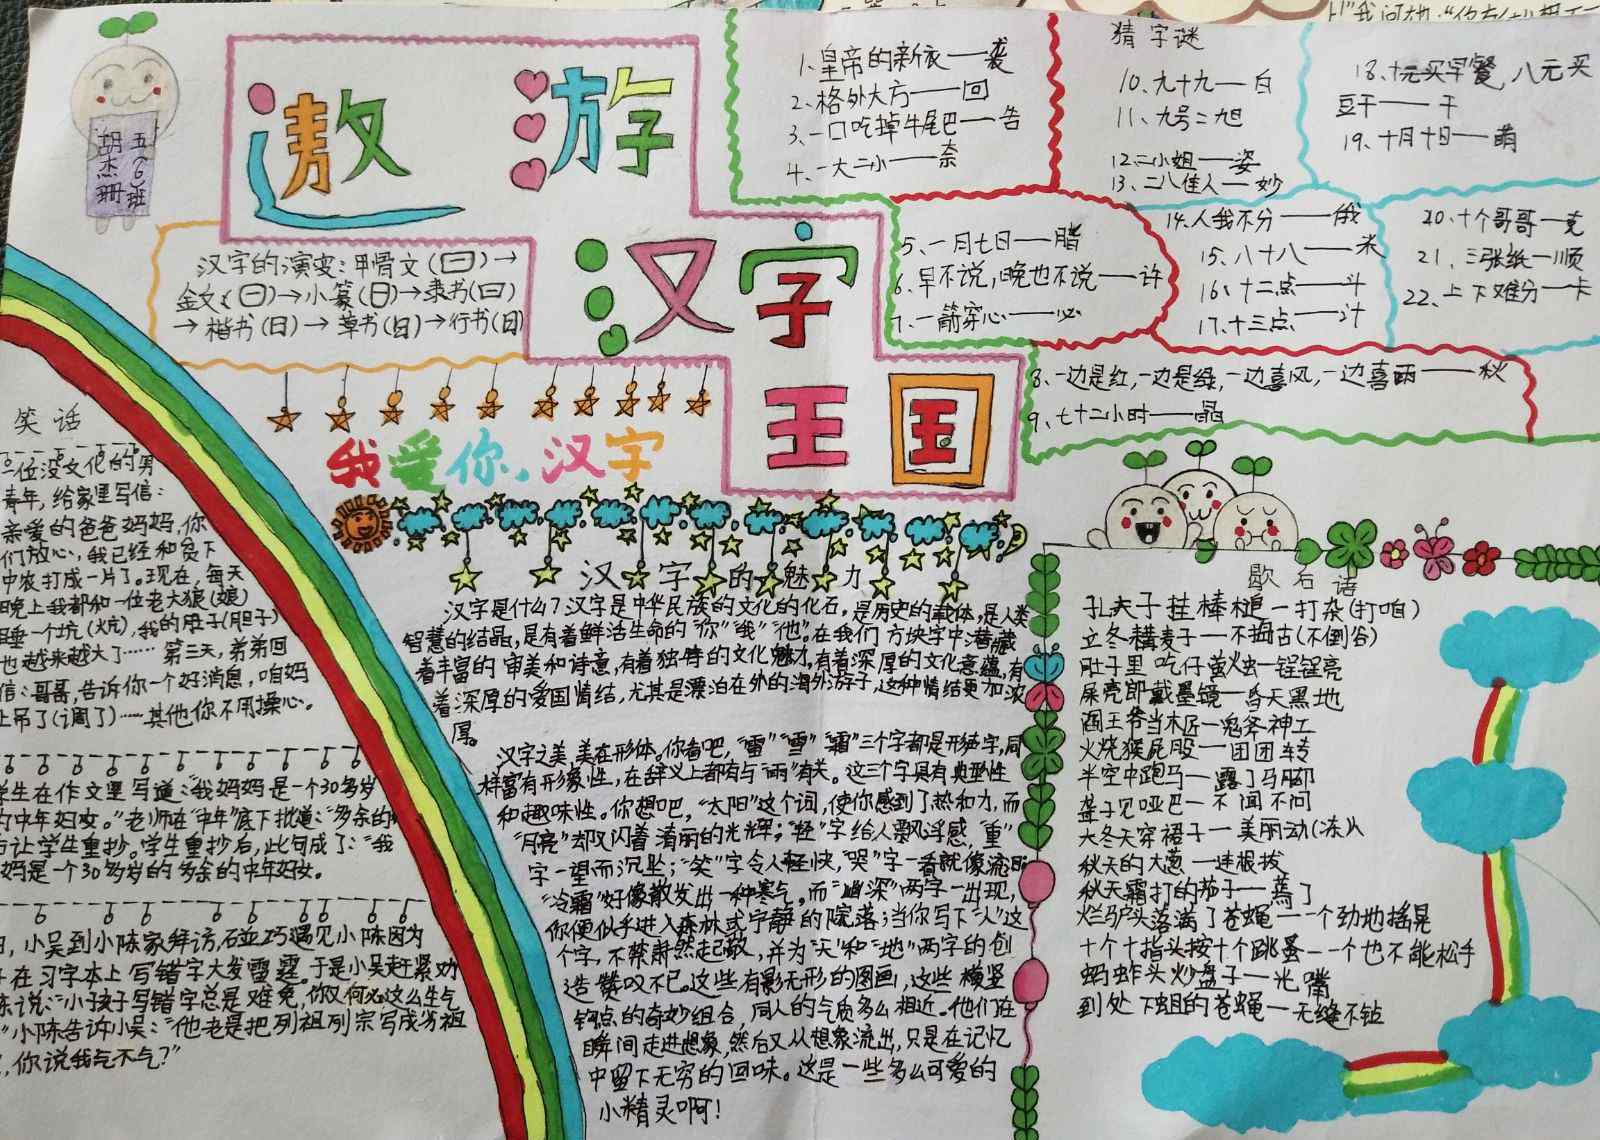 五(6)班
胡杰珊
遨游
汉字
王国
汉字的演变：甲骨文(曰)→
金文(曰)→小篆(日)→隶书(曰)
→楷书(日)→草书(日)→行书(日)
我爱你，汉字
1、皇帝的新衣——袭
2、格外大方——回
3、一口吃掉牛尾巴——告
4、一大二小——奈
5、一月七日——腊
6、早不说，晚也不说——许
7、一箭穿心——必
8、一边是红，一边是绿，一边喜风，一边喜雨——秋
9、七十二小时——晶
猜字谜
10、九十九——白
11、九号二旭
12、二小姐——姿
13、二八佳人——妙
14、人我不分——俄
15、八十八——米
16、十二点——斗
17、十三点——汁
18、十元买早餐，八元买
豆干——干
19、十月十日——萌
20、十个哥哥—克
21、三张纸—顺
22、上下难分—卡
笑话
一位没文化的男
青年，给家里写信：
亲爱的爸爸妈妈，你
们放心，我已经和贫下
中农打成一片了。现在，每天
晚上我都和一位老大狼(娘)
睡一个坑(炕)，我的肚子(胆子)
也越来越大了……第三天，弟弟回
信：哥哥，告诉你一个好消息，咱妈
上吊了(调了)……其他你不用操心。
学生在作文里写道："我妈妈是一个30多岁
的中年妇女。"老师在"中年"底下批道："多余的"
让学生重抄。学生重抄后，此句成了："我
妈是一个30多岁的多余的中年妇女。
，小吴到小陈家拜访，碰巧遇见小陈因为
在习字本上写错字大发雷霆。于是小吴赶紧劝
陈说："小孩子写错字总是难免，你又何必这么生气
"小陈告诉小吴："他老是把列祖列宗写成劣祖
，你说我气不气？"
汉字的魅力
汉字是什么？汉字是中华民族的文化的化石，是历史的载体，是人类
智慧的结晶，是有着鲜活生命的"你""我""他"。在我们方块字中潜藏
着丰富的审美和诗意，有着独特的文化魅力，有着深厚的文化意蕴，有
着深厚的爱国情结，尤其是漂泊在外的海外游子，这种情结更加浓
厚。
汉字之美，美在形体。你看吧，"雷""雪""霜"三个字都是形声字，同
样富有形象性，在辞义上都有与"雨"有关。这三个字具有典型性
和趣味性。你想吧，"太阳"这个词，使你感到了热和力，而
"月亮"却又闪着清丽的光辉；"轻"字给人飘浮感，"重"
字一望而沉坠；"笑"字令人轻快，"哭"字一看就像流泪
"冷霜"好像散发出一种寒气。而"幽深"两字一出现，
你便似乎进入森林或宇静的院落；当你写下"人"这
个字，不禁肃然起敬，并为"天"和"地"两字的创
造赞叹不已。这些有影无形的图画，这些横竖
钩点的奇妙组合，同人的气质多么相近。他们在
瞬间走进想象，然后又从想象流出，只是在记忆
中留下无穷的回味。这是一些多么可爱的
小精灵啊！
歇后语
孔夫子挂棒槌—打杂(打咱)
立冬耩麦子—不拇古(不倒谷)
肚子里吃仔萤火虫—锃锃亮
屎壳郎戴墨镜—昏天黑地
阎王爷当木匠—鬼斧神工
火烧猴屁股—团团转
半空中跑马—露了马脚
聋子见哑巴—不闻不问
大冬天穿裙子—美丽动(冻)人
秋天的大葱—连根拔
秋天霜打的茄子—蔫了
烂驴头落满了苍蝇—一个劲地摇晃
十个十指头按十个跳蚤—一个也不能松手
蚂蚱头炒盘子—光嘴
到处下蛆的苍蝇—无缝不钻